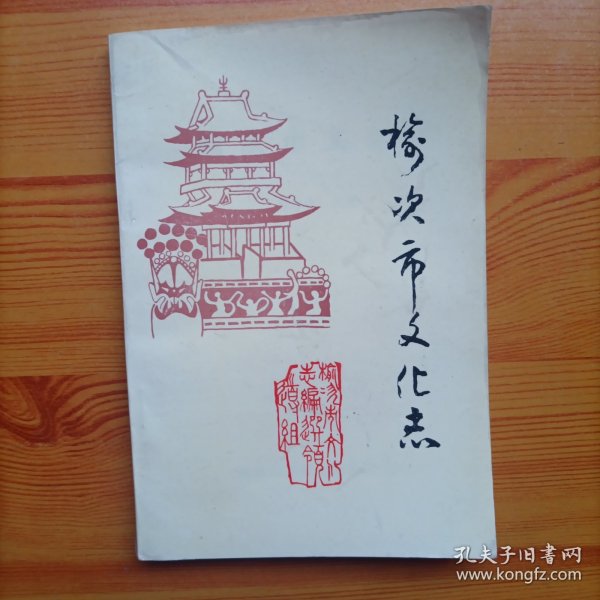 榆次市文化志
榆次市文化
志编选领
导组
孔夫子旧书网
www.kongfz.com